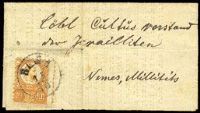 Löbl Cultus vorstand
der Israelliten
Nemes, Millitits